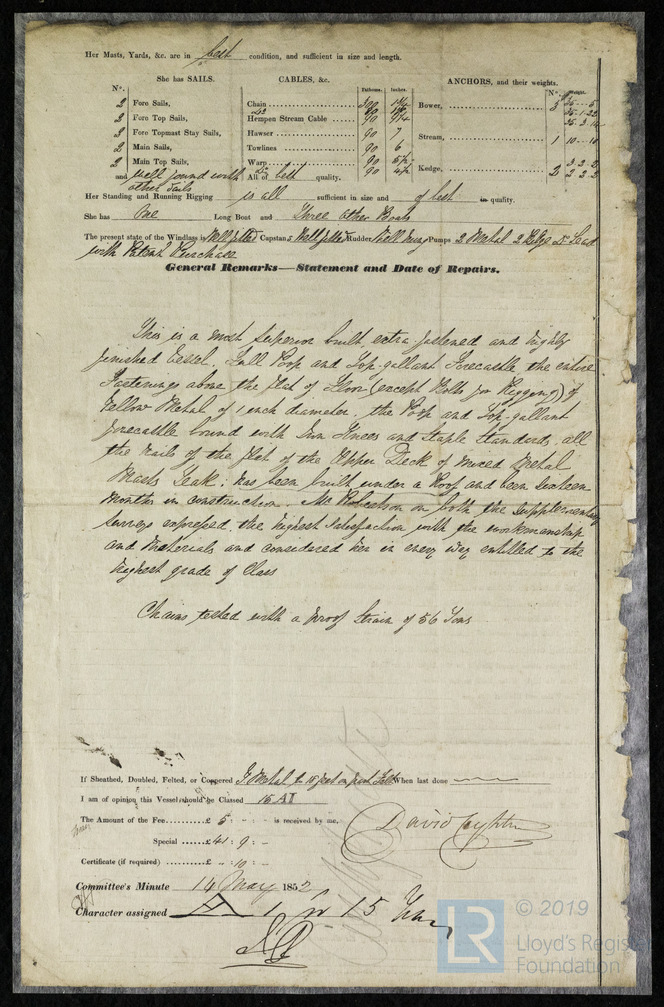 Her Masts, Yards, &c. are in best condition, and sufficient in size and length.
She has SAILS.
CABLES, &c.
ANCHORS, and their weights.
N°.
Fathoms. Inches.
N°. Weight.
2 Fore Sails,
2 Fore Top Sails,
2 Fore Topmast Stay Sails,
2 Main Sails,
2 Main Top Sails,
and well found with other sails
Chain 300
Hempen Stream Cable 90
Hawser 90 7
Towlines 90 6
Warp 90
All of best quality.
Bower,
Stream, 1 10
Kedge, 2
Her Standing and Running Rigging is all sufficient in size and of best in quality.
She has One Long Boat and Three other Boats
The present state of the Windlass is Well fitted Capstan Well fitted Rudder Well hung Pumps 2 Metal 2 Lead
with Patent Purchase
General Remarks—Statement and Date of Repairs.
This is a most superior built extra fastened and highly
finished Vessel. Full Poop and Top-gallant Forecastle the entire
Fastenings above the flat of Floor (except Bolts for Rigging) of
Yellow Metal of 1 inch diameter. the Poop and Top-gallant
forecastle bound with Iron Knees and Staple Standards, all
the nails of the flat of the Upper Deck of mixed Metal
Masts Teak: has been built under a Roof and been sixteen
Months in construction. Mr Robertson on both the supplementary
surveys expressed the highest satisfaction with the workmanship
and Materials and considered her in every way entitled to the
highest grade of Class
Chains tested with a proof strain of 56 Tons
If Sheathed, Doubled, Felted, or Coppered Y Metal to 18 feet on Felt When last done
I am of opinion this Vessel should be Classed 15 A1
The Amount of the Fee £ 5 : - : - is received by me,
Special £41 : 9 : -
Certificate (if required) £ - : 10 : -
David
Committee's Minute 14 May 1852
Character assigned A 1 for 15 Years
LR
© 2019
Lloyd's Register
Foundation